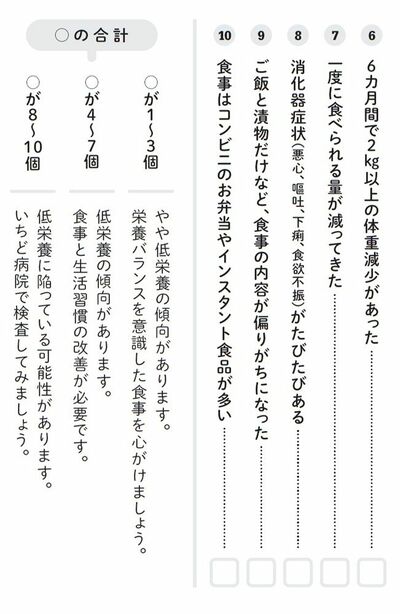 6 6カ月間で2kg以上の体重減少があった
7 一度に食べられる量が減ってきた
8 消化器症状(悪心、嘔吐、下痢、食欲不振)がたびたびある
9 ご飯と漬物だけなど、食事の内容が偏りがちになった
10 食事はコンビニのお弁当やインスタント食品が多い
○の合計
○が1〜3個
やや低栄養の傾向があります。
栄養バランスを意識した食事を心がけましょう。
○が4〜7個
低栄養の傾向があります。
食事と生活習慣の改善が必要です。
○が8〜10個
低栄養に陥っている可能性があります。
いちど病院で検査してみましょう。